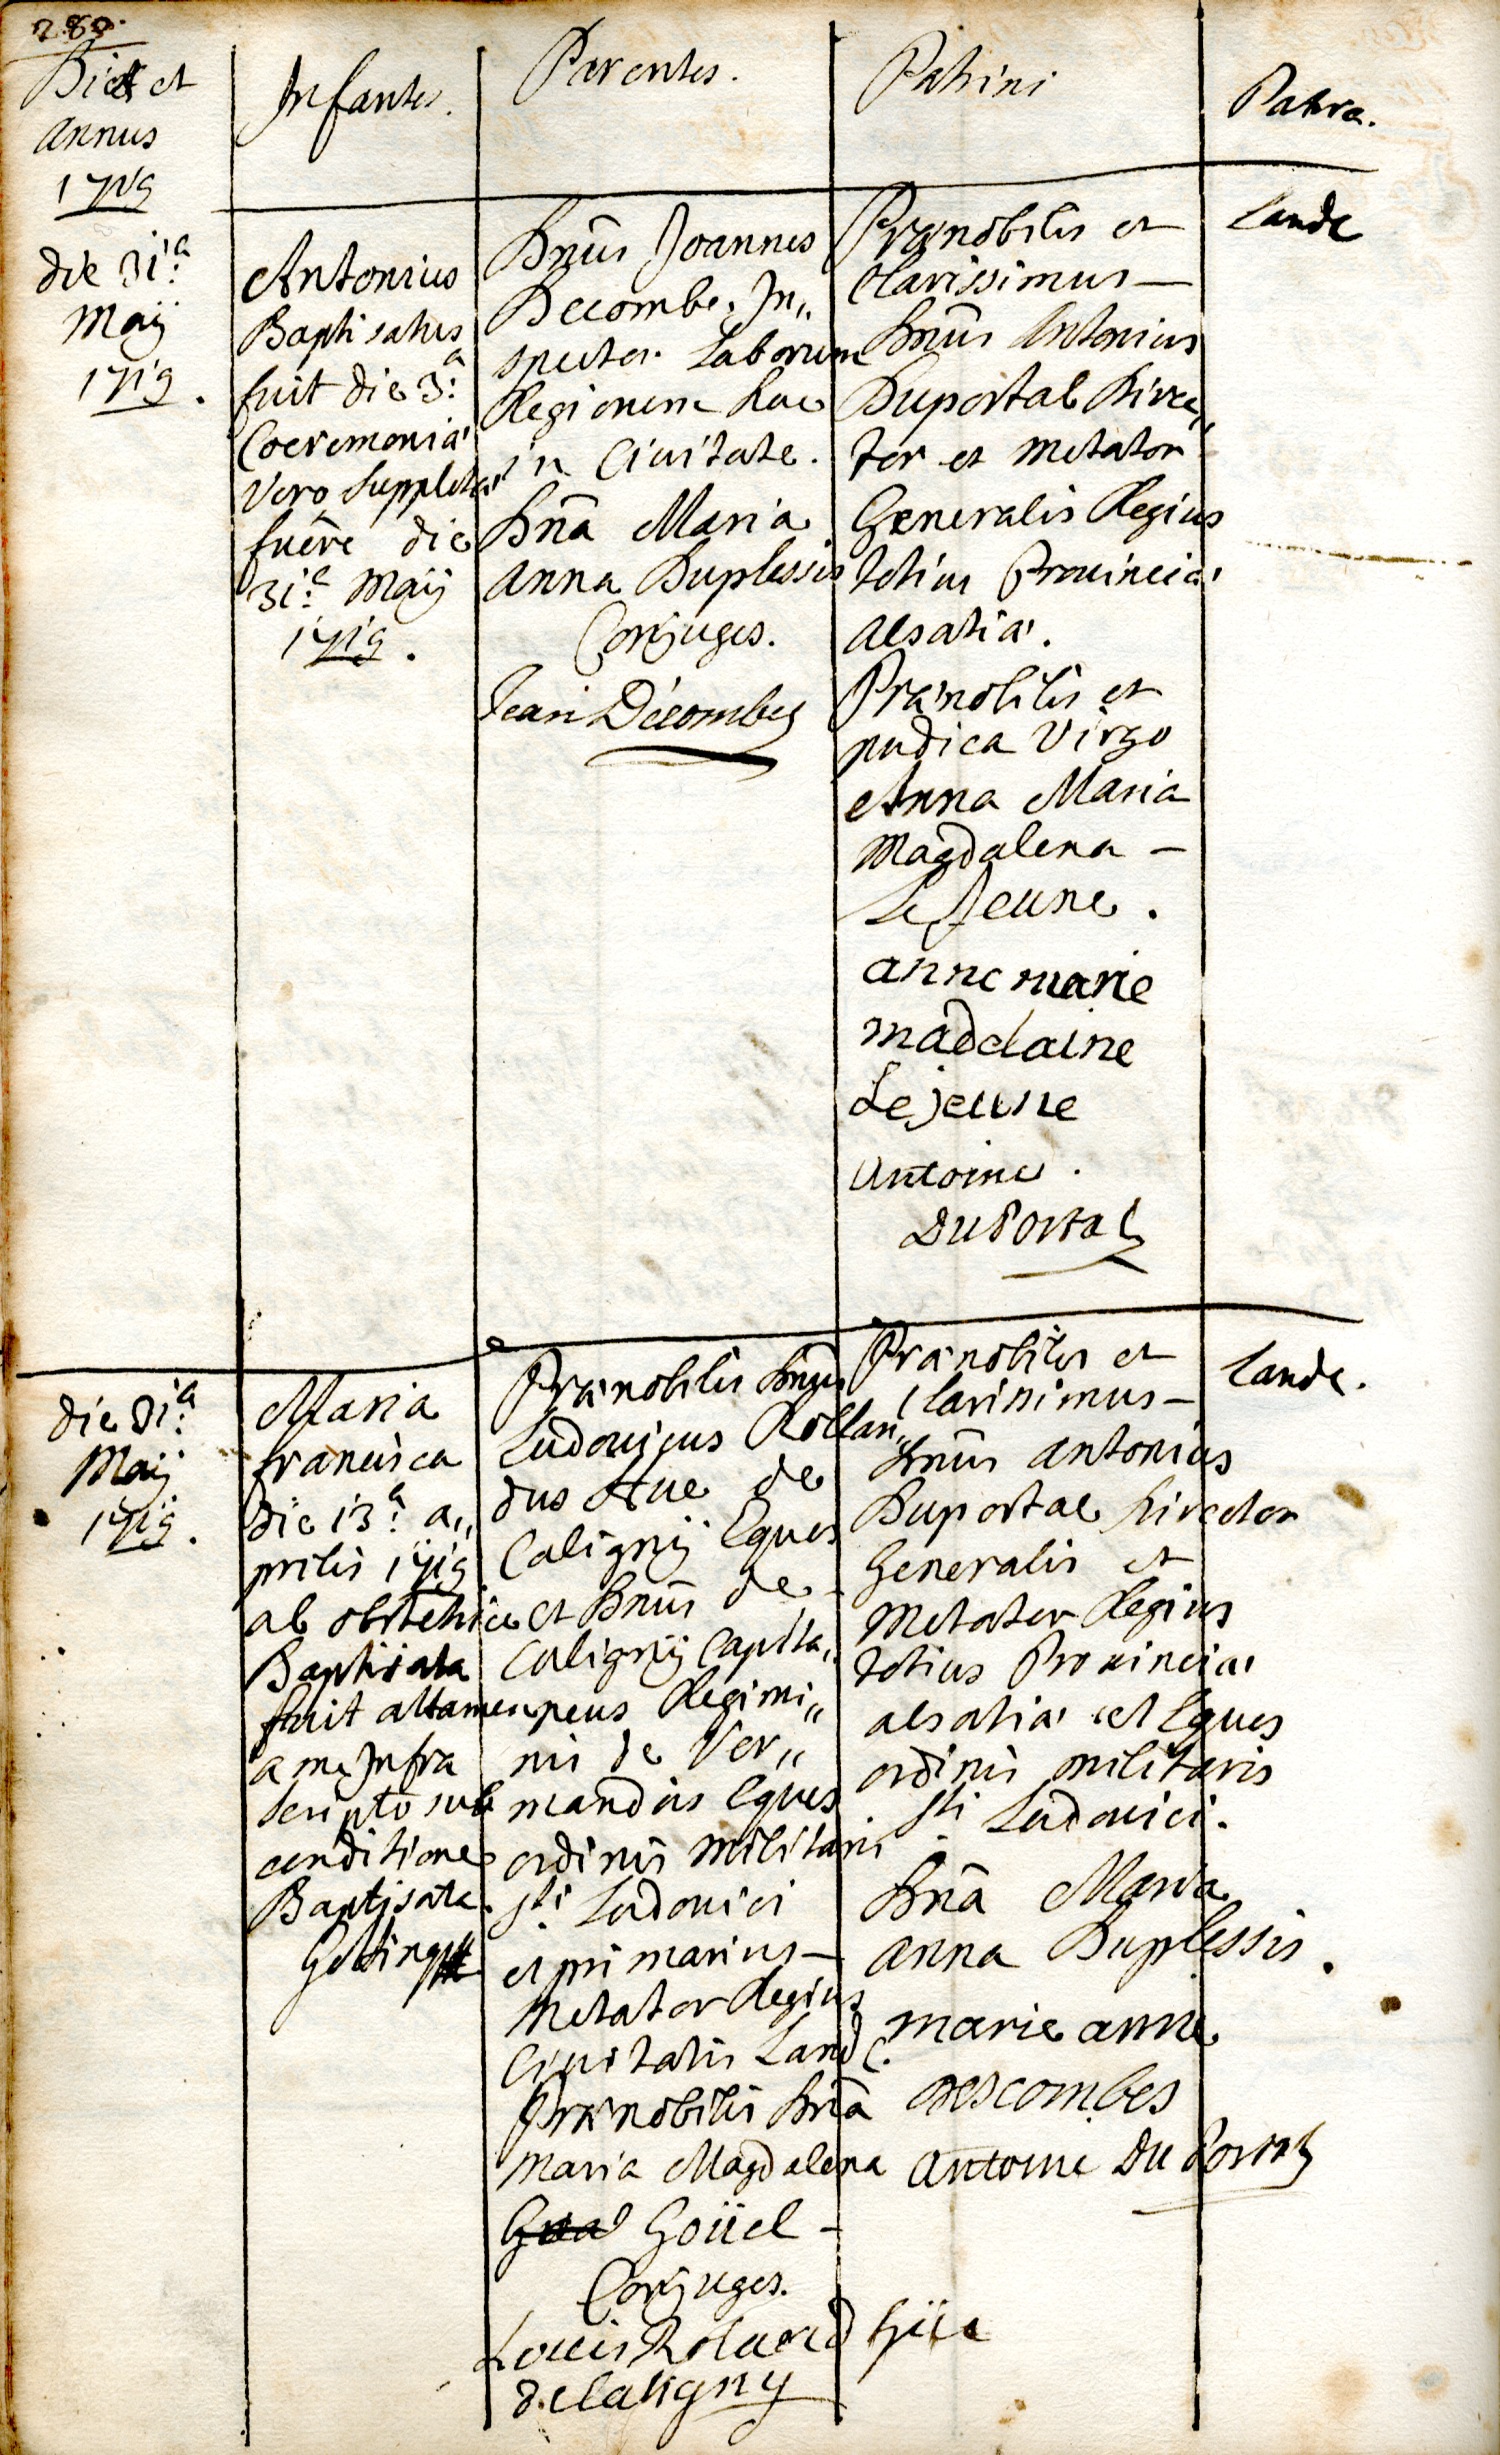 280.
Dies et
annus
1719
Infantes.
Parentes.
Patrini
Patria.
die 31.a
Maij
1719.
Antonius
Baptisatus
fuit die 3.a
Coeremoniae
vero suppletae
fuêre die
31.a Maij
1719.
Dnus Joannes
Decombe, In,,
spector Laborum
Regiorum hac
in Civitate.
Dna Maria
Anna Duplessis
Conjuges.
Jean Décombes
Praenobilis et
Clarissimus –
Dnus Antonius
Duportal Direc,,
tor et Metator
Generalis Regius
totius Provinciae
Alsatiae.
Praenobilis et
pudica Virgo
Anna Maria
Magdalena –
Le Jeune.
anne marie
madelaine
Le jeune
Antoine
Du Portal
Landa
die 31.a
Maij
1719.
Maria
francisca
die 13.a a,,
prilis 1719
ab obstetrice
Baptisata
fuit attamen
a me Infra
scripto sub
conditione
Baptisata.
Praenobilis Dnus
Ludovicus Rollan,,
dus Hue de
Caligny Eques
et Dnus de
Caligny Capita,,
neus Regimi,,
nis de Ver,,
mandois Eques
ordinis militaris
Sti Ludovici
et primarius –
Metator Regius
Civitatis Land.
Praenobilis Dna
Maria Magdalena
Goüel –
Conjuges.
Louis Roland hüe
de Caligny
Praenobilis et
Clarissimus –
Dnus Antonius
Duportal Director
Generalis et
Metator Regius
totius Provinciae
alsatiae et Eques
ordinis militaris
Sti Ludovici.
Dna Maria
Anna Duplessis.
marie anne
descombes
Antoine Du Portal
Landa.